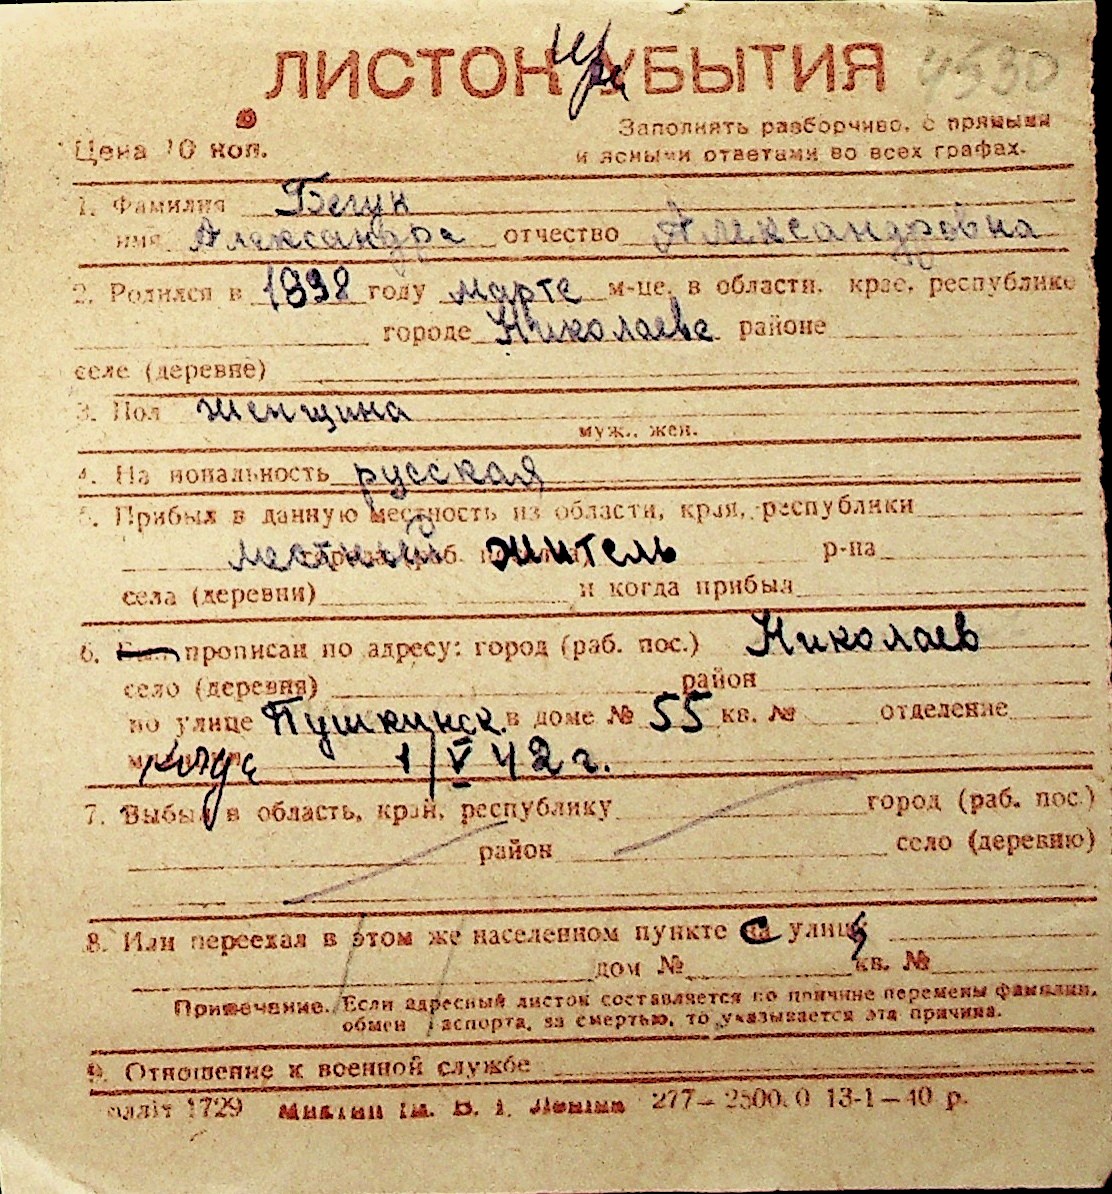 ЛИСТОК УБЫТИЯ
4530
Цена 10 коп.
Заполнять разборчиво, с прямыми
и ясными ответами во всех графах.
1. Фамилия Бегун
имя Александра отчество Александровна
2. Родился в 1898 году марте м-це, в области, крае, республике
городе Николаеве районе
селе (деревне)
3. Пол женщина
муж., жен.
4. Национальность русская
5. Прибыл в данную местность из области, края, республики
местный житель р-на
села (деревни) и когда прибыл
6. прописан по адресу: город (раб. пос.) Николаев
село (деревня) район
по улице Пушкинск. в доме № 55 кв. № отделение
1/V 42 г.
7. Выбыл в область, край, республику город (раб. пос.)
район село (деревню)
8. Или переехал в этом же населенном пункте с улицы
дом № кв. №
Примечание. Если адресный листок составляется по причине перемены фамилии,
обмен паспорта, за смертью, то указывается эта причина.
9. Отношение к военной службе
1729 ім. В. І. Леніна 277—2500.0 13-1—40 р.